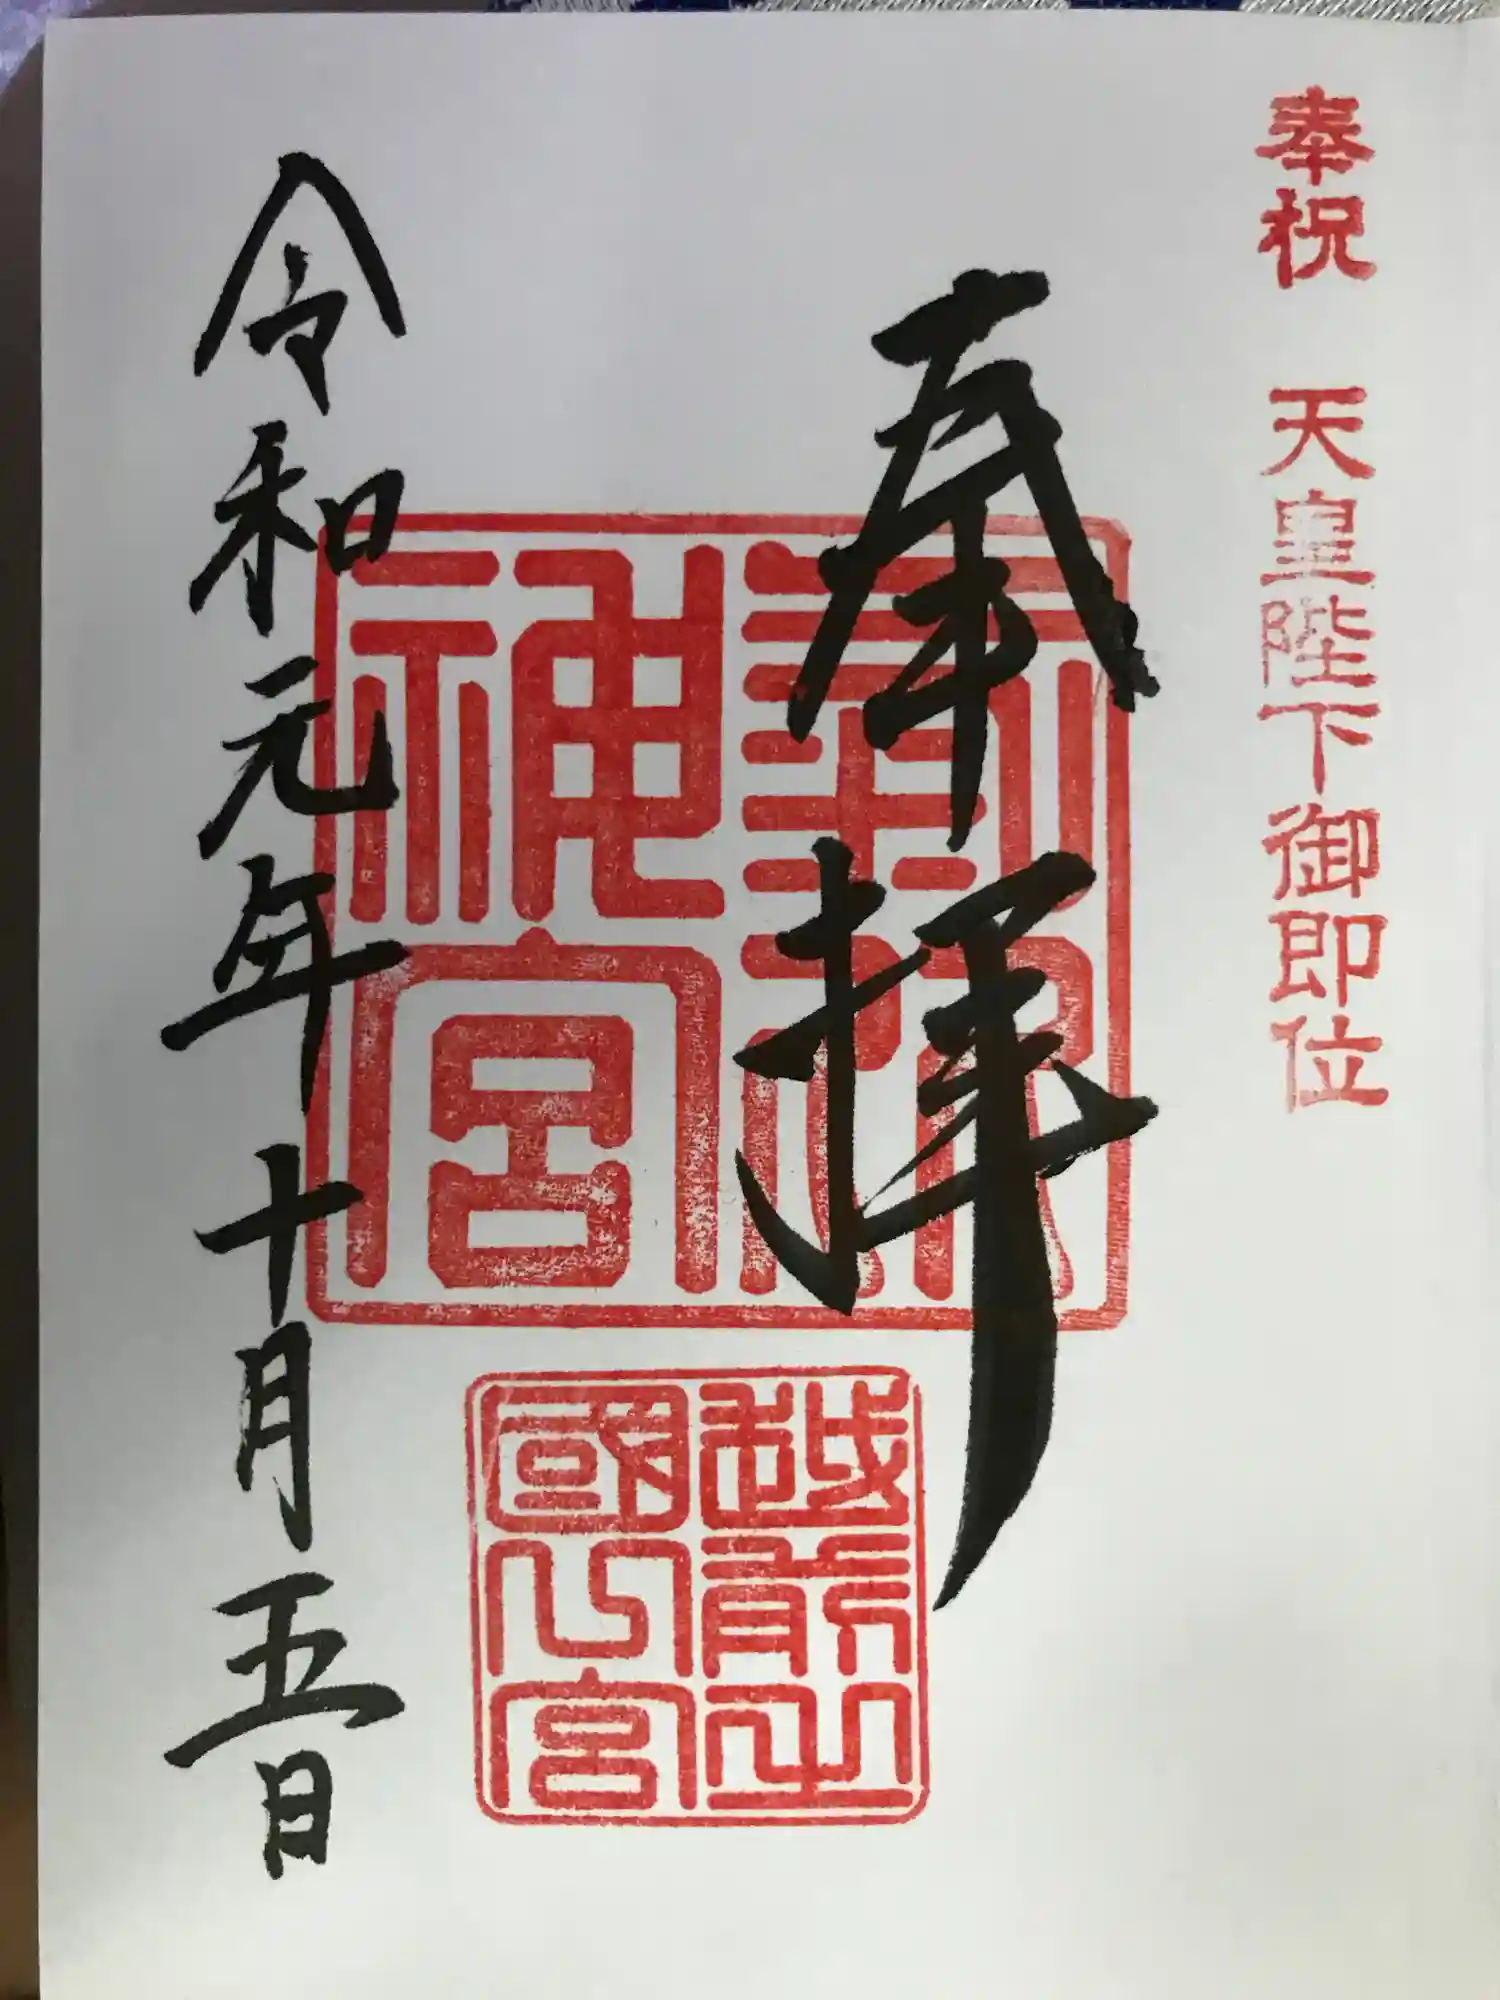 奉祝 天皇陛下御即位
奉拝
神宮
越前之
國
宮
令和元年十月五日